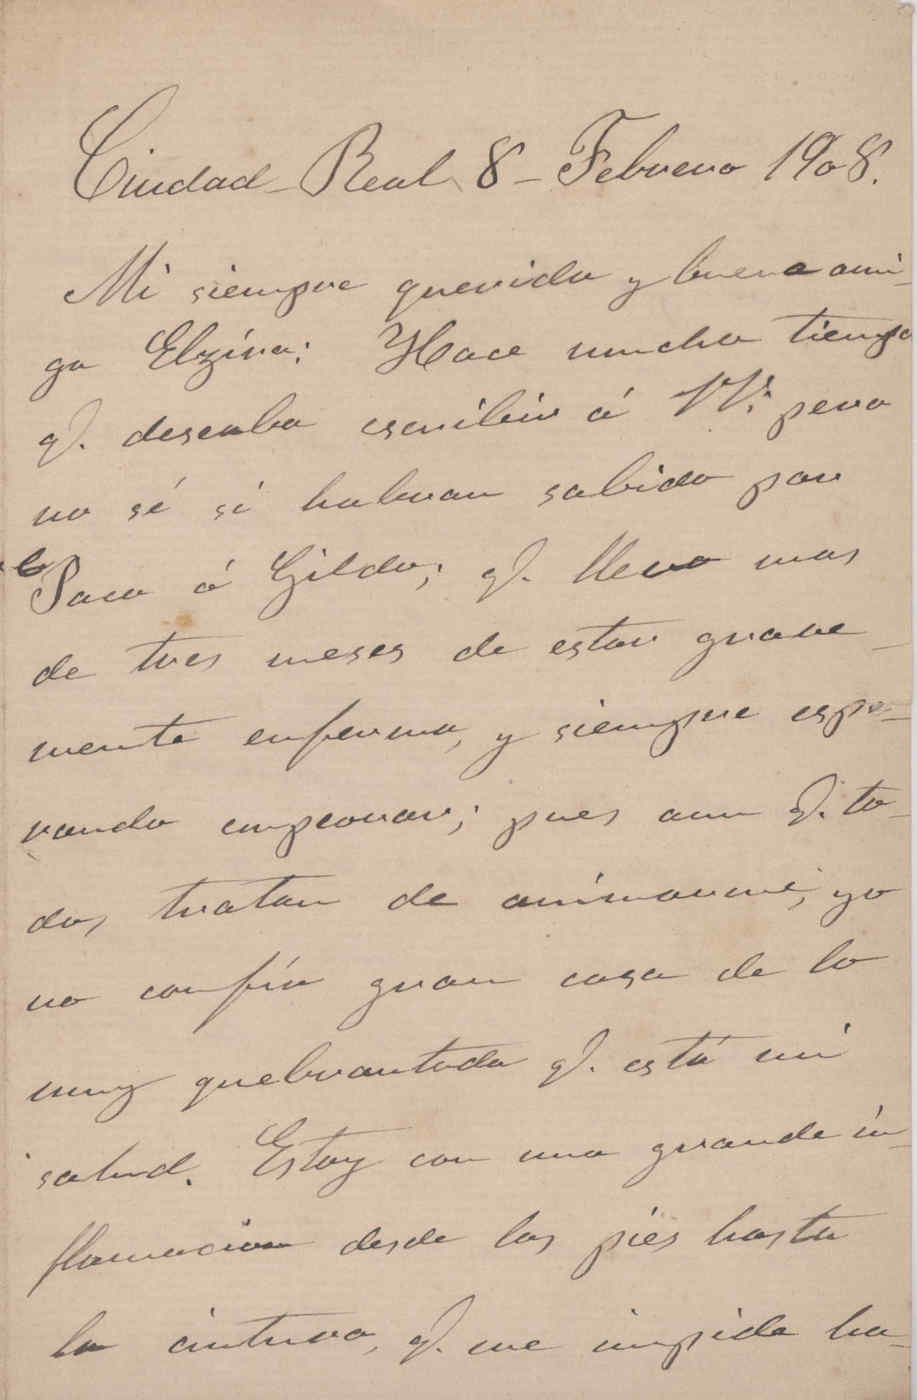 Ciudad-Real 8-Febrero 1908.
Mi siempre querida y buena ami-
ga Elzira: Hace mucho tiempo
q. deseaba escribir á VV. pero
no sé si habran sabido por
Paca ó Gilda; q. llevo mas
de tres meses de estar grave-
mente enferma, y siempre espe-
rando empeorar; pues aun q. to-
dos tratan de animarme, yo
no confío gran cosa de lo
muy quebrantada q. está mi
salud. Estoy con una grande in-
flamacion desde los piés hasta
la cintura, q. me impide ha-